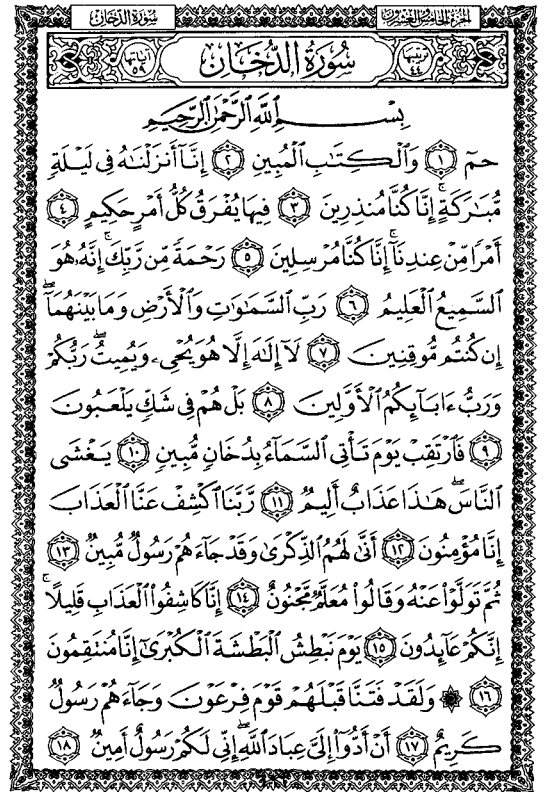 الجزء الخامس والعشرون
سورة الدخان
ترتيبها ٤٤
سُورَةُ الدُّخَانِ
آياتها ٥٩
بِسْمِ اللَّهِ الرَّحْمَٰنِ الرَّحِيمِ
حمٓ ١ وَٱلْكِتَٰبِ ٱلْمُبِينِ ٢ إِنَّآ أَنزَلْنَٰهُ فِى لَيْلَةٍ
مُّبَٰرَكَةٍ ۚ إِنَّا كُنَّا مُنذِرِينَ ٣ فِيهَا يُفْرَقُ كُلُّ أَمْرٍ حَكِيمٍ ٤
أَمْرًا مِّنْ عِندِنَآ ۚ إِنَّا كُنَّا مُرْسِلِينَ ٥ رَحْمَةً مِّن رَّبِّكَ ۚ إِنَّهُۥ هُوَ
ٱلسَّمِيعُ ٱلْعَلِيمُ ٦ رَبِّ ٱلسَّمَٰوَٰتِ وَٱلْأَرْضِ وَمَا بَيْنَهُمَآ ۖ
إِن كُنتُم مُّوقِنِينَ ٧ لَآ إِلَٰهَ إِلَّا هُوَ يُحْىِۦ وَيُمِيتُ ۖ رَبُّكُمْ
وَرَبُّ ءَابَآئِكُمُ ٱلْأَوَّلِينَ ٨ بَلْ هُمْ فِى شَكٍّ يَلْعَبُونَ
٩ فَٱرْتَقِبْ يَوْمَ تَأْتِى ٱلسَّمَآءُ بِدُخَانٍ مُّبِينٍ ١٠ يَغْشَى
ٱلنَّاسَ ۖ هَٰذَا عَذَابٌ أَلِيمٌ ١١ رَّبَّنَا ٱكْشِفْ عَنَّا ٱلْعَذَابَ
إِنَّا مُؤْمِنُونَ ١٢ أَنَّىٰ لَهُمُ ٱلذِّكْرَىٰ وَقَدْ جَآءَهُمْ رَسُولٌ مُّبِينٌ ١٣
ثُمَّ تَوَلَّوْا۟ عَنْهُ وَقَالُوا۟ مُعَلَّمٌ مَّجْنُونٌ ١٤ إِنَّا كَاشِفُوا۟ ٱلْعَذَابِ قَلِيلًا ۚ
إِنَّكُمْ عَآئِدُونَ ١٥ يَوْمَ نَبْطِشُ ٱلْبَطْشَةَ ٱلْكُبْرَىٰٓ إِنَّا مُنتَقِمُونَ
١٦ ۞ وَلَقَدْ فَتَنَّا قَبْلَهُمْ قَوْمَ فِرْعَوْنَ وَجَآءَهُمْ رَسُولٌ
كَرِيمٌ ١٧ أَنْ أَدُّوٓا۟ إِلَىَّ عِبَادَ ٱللَّهِ ۖ إِنِّى لَكُمْ رَسُولٌ أَمِينٌ ١٨